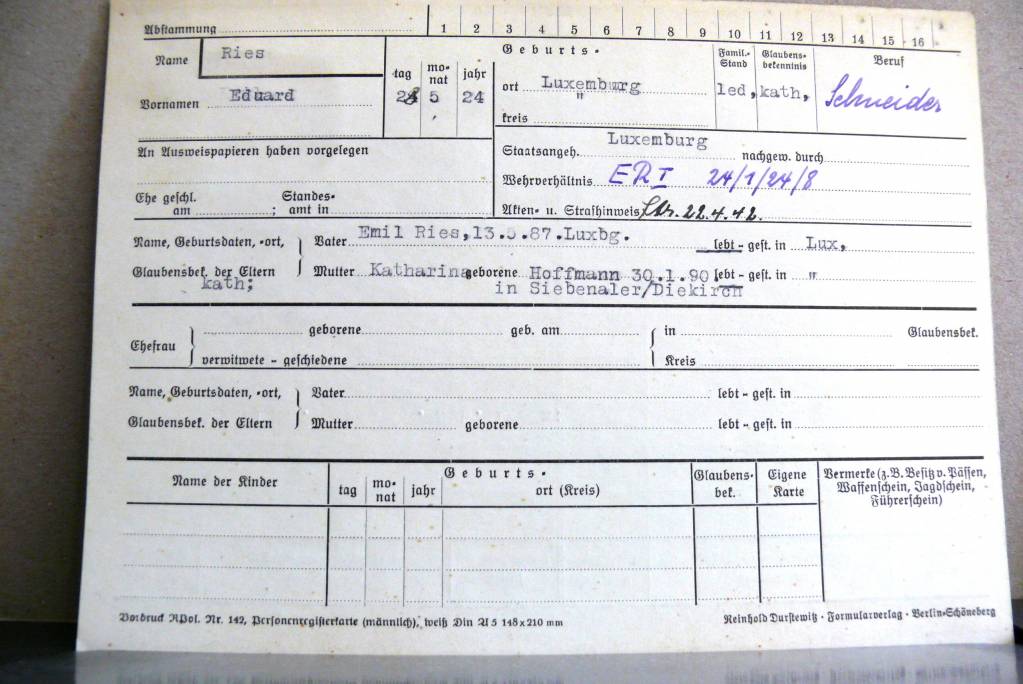 Abstammung 1 2 3 4 5 6 7 8 9 10 11 12 13 14 15 16
Name Ries
Vornamen Eduard
tag monat jahr
5 24
Geburts-
ort Luxemburg
kreis "
Famil.-Stand led,
Glaubensbekenntnis kath,
Beruf Schneider
An Ausweispapieren haben vorgelegen
Staatsangeh. Luxemburg nachgew. durch
Wehrverhältnis ER I 24/1/24/8
Ehe geschl. am ; Standesamt in
Akten- u. Strafhinweis Str. 22.4.42.
Name, Geburtsdaten, -ort, Vater Emil Ries,13.5.87.Luxbg. lebt - gest. in Lux,
Glaubensbek. der Eltern Mutter Katharina geborene Hoffmann 30.1.90 lebt - gest. in "
kath; in Siebenaler/Diekirch
geborene geb. am in Glaubensbek.
Ehefrau
verwitwete - geschiedene Kreis
Name, Geburtsdaten, -ort, Vater lebt - gest. in
Glaubensbek. der Eltern Mutter geborene lebt - gest. in
Name der Kinder
Geburts-
tag monat jahr ort (Kreis)
Glaubensbek.
Eigene Karte
Vermerke (z.B. Besitz v. Pässen,
Waffenschein, Jagdschein,
Führerschein)
Vordruck RPol. Nr. 142, Personenregisterkarte (männlich), weiß Din A 5 148x210 mm
Reinhold Durstewitz · Formularverlag · Berlin-Schöneberg